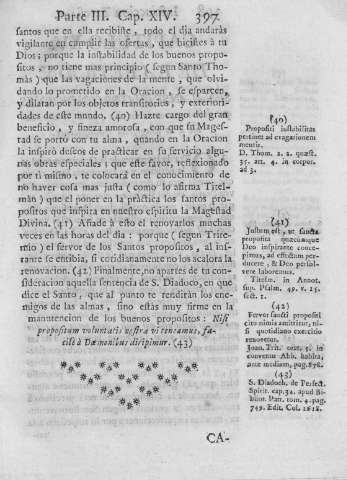 Parte III. Cap. XIV. 397.
santos que en ella recibiste, todo el dia andaràs
vigilante en cumplir las ofertas, que hiciste à tu
Dios; porque la instabilidad de los buenos propo-
sitos, no tiene mas principio (segun Santo Tho-
màs) que las vagaciones de la mente, que olvi-
dando lo prometido en la Oracion, se esparcen,
y dilatan por los objetos transitorios, y exteriori-
dades de este mundo. (40) Hazte cargo del gran
beneficio, y fineza amorosa, con que su Mages-
tad se portò con tu alma, quando en la Oracion
la inspirò deseos de practicar en su servicio algu-
nas obras especiales; que este favor, reflexionado
por ti mismo, te colocarà en el conocimiento de
no haver cosa mas justa (como lo afirma Titel-
màn) que el poner en la pràctica los santos pro-
positos que inspira en nuestro espiritu la Magestad
Divina. (41) Añade à esto el renovarlos muchas
veces en las horas del dia: porque (segun Trite-
mio) el fervor de los Santos propositos, al ins-
tante se entibia, si cotidianamente no los acalora la
renovacion. (42) Finalmente, no apartes de tu con-
sideracion aquella sentencia de S. Diadoco, en que
dice el Santo, que al punto te rendiràn los ene-
migos de las almas, sino estàs muy firme en la
manutencion de los buenos propositos: Nisi
propositum voluntatis vestræ vi teneamus, fa-
cilè à Dæmonibus diripimur. (43)
CA-
(40)
Propositi instabilitas
pertinet ad evagationem
mentis.
D. Thom. 2. 2. quæst.
35. art. 4. in corpor.
ad 3.
(41)
Justum est, ut sancta
proposita quæcumque
Deo inspirante conce-
pimus, ad effectum per-
ducere, & Deo persol-
vere laboremus.
Titelm. in Annot.
sup. Psalm. 49. v. 15.
sect. 1.
(42)
Fervor sancti propositi
cito nimis amittitur, ni-
si quotidiano exercitio
renovetur.
Joan. Trit. orat. 5. in
conventu Abb. habita,
ante mediam, pag. 878.
(43)
S. Diadoch. de Perfect.
Spirit. cap. 34. apud Bi-
blioth. Patr. tom. 4. pag.
749. Edit. Col. 1618.